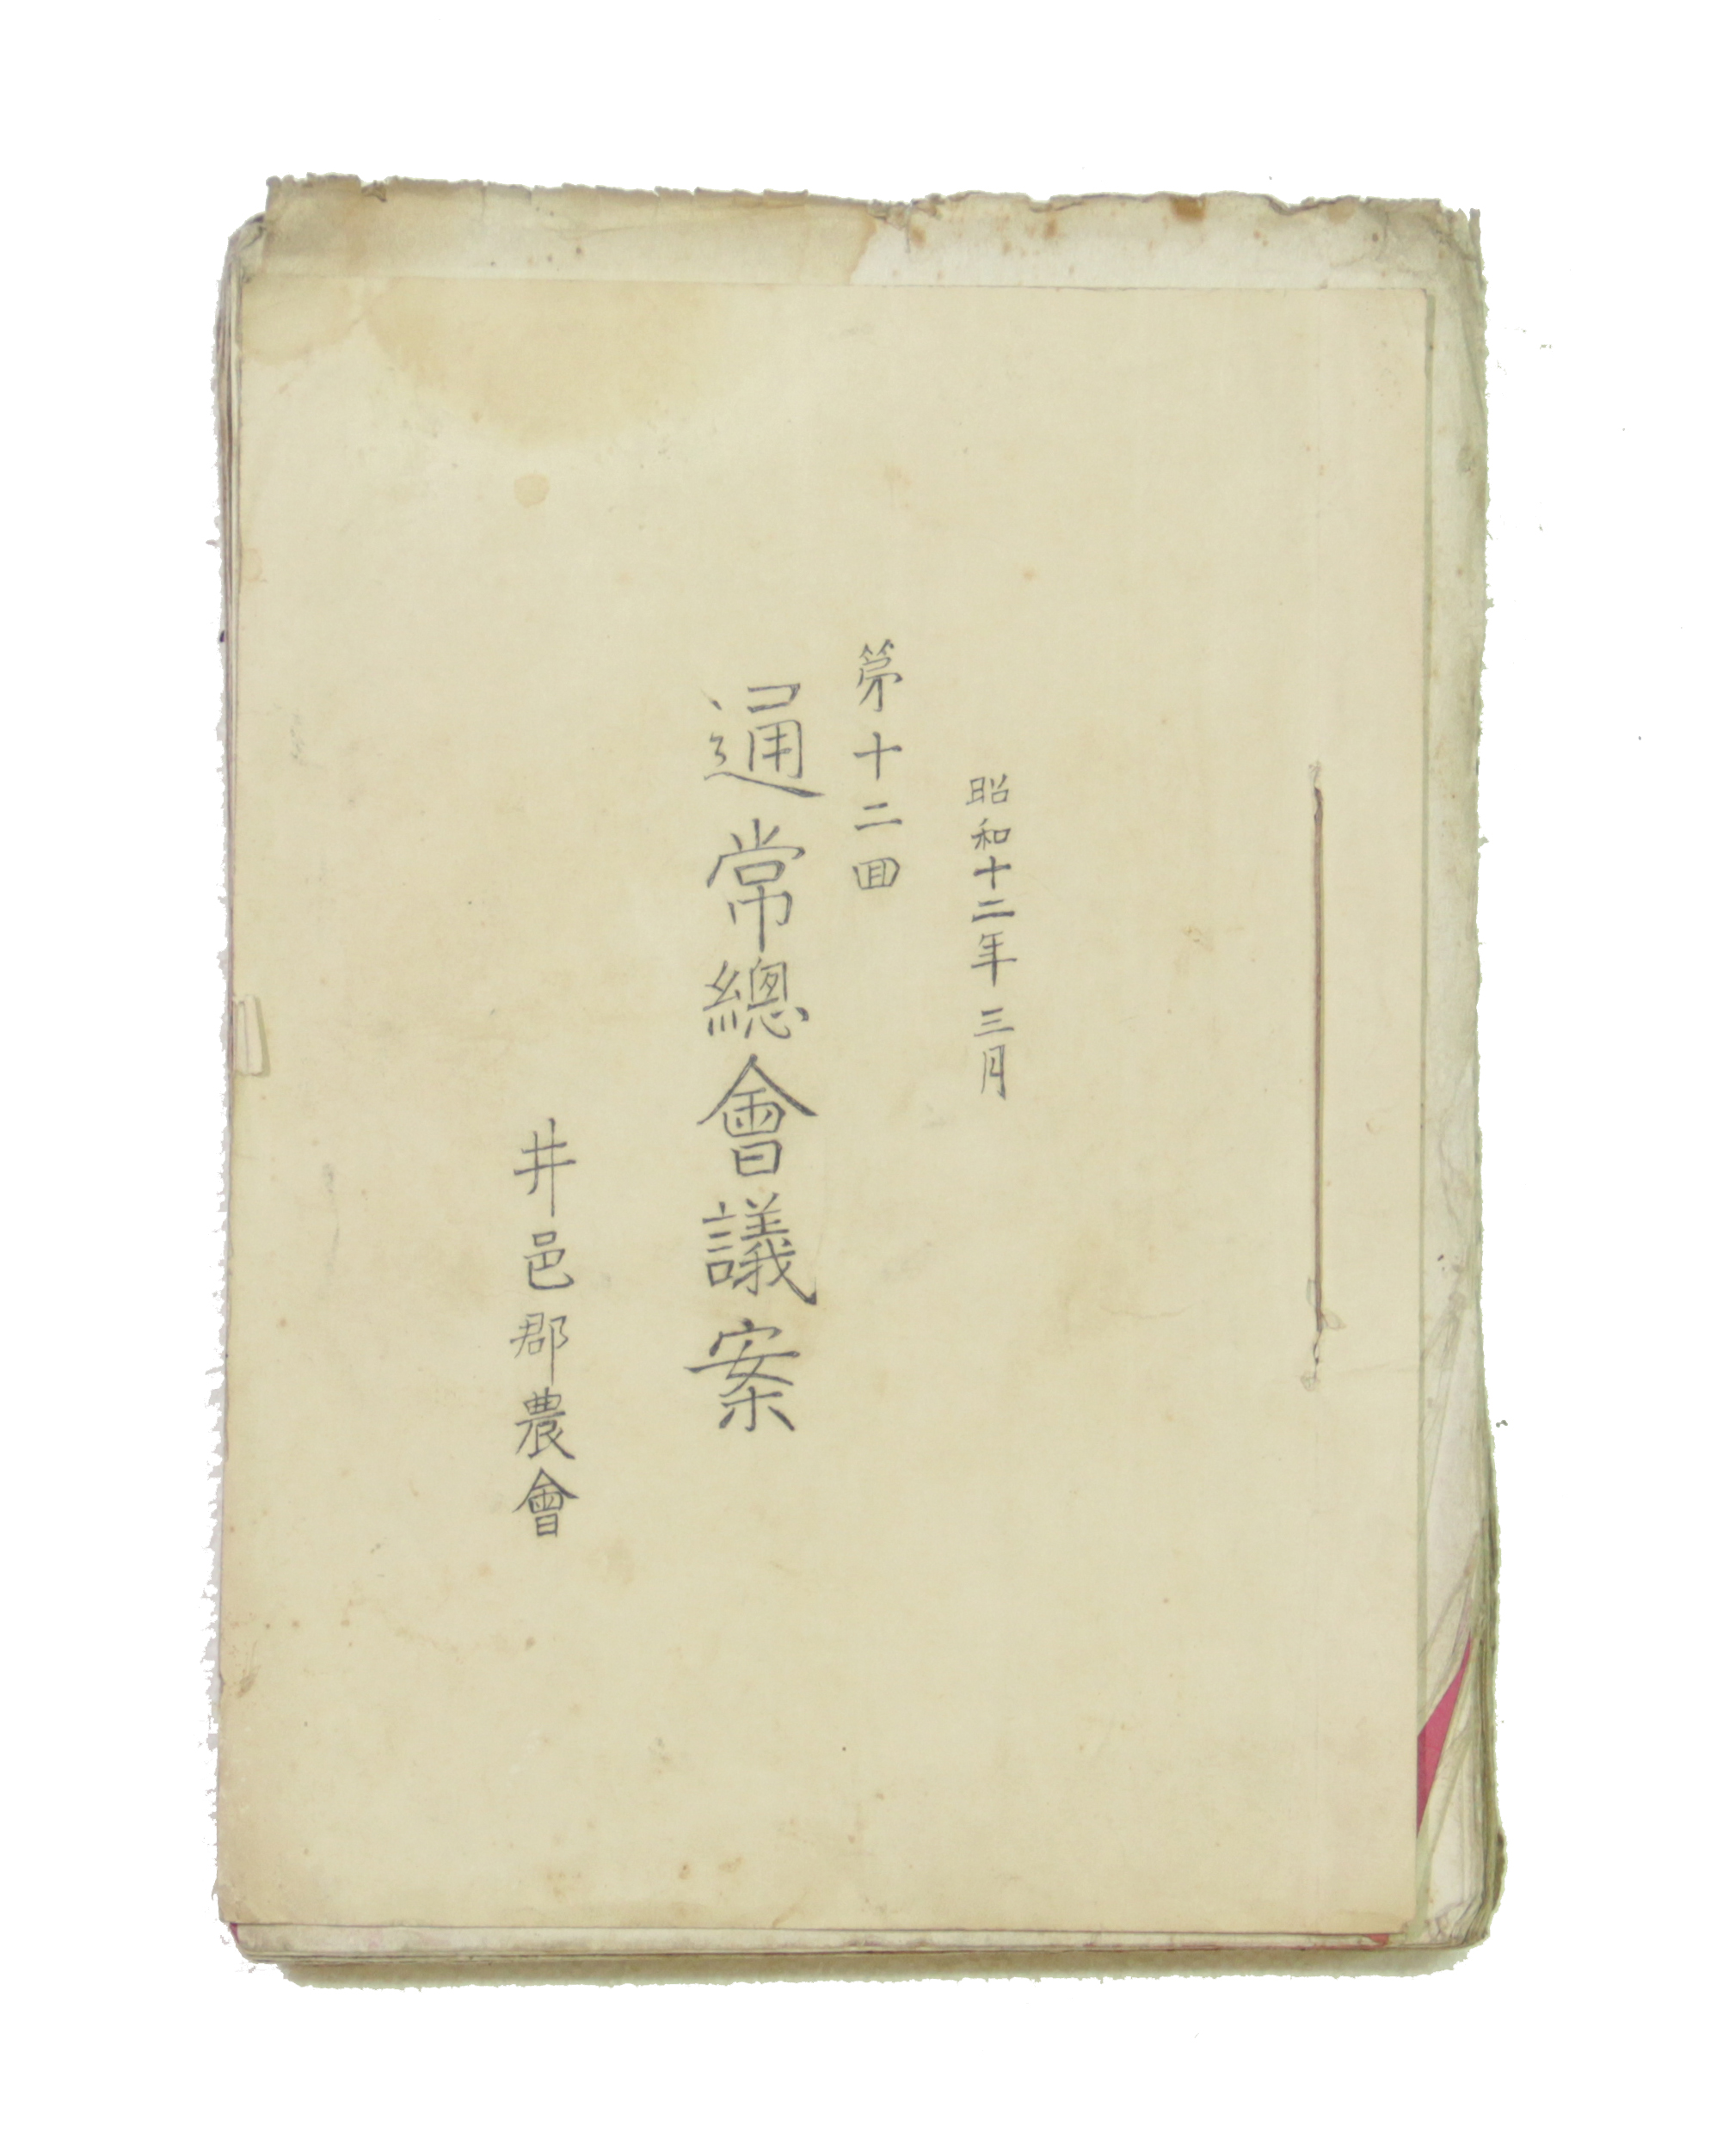 昭和十二年三月
第十二囬
通常總會議案
井邑郡農會